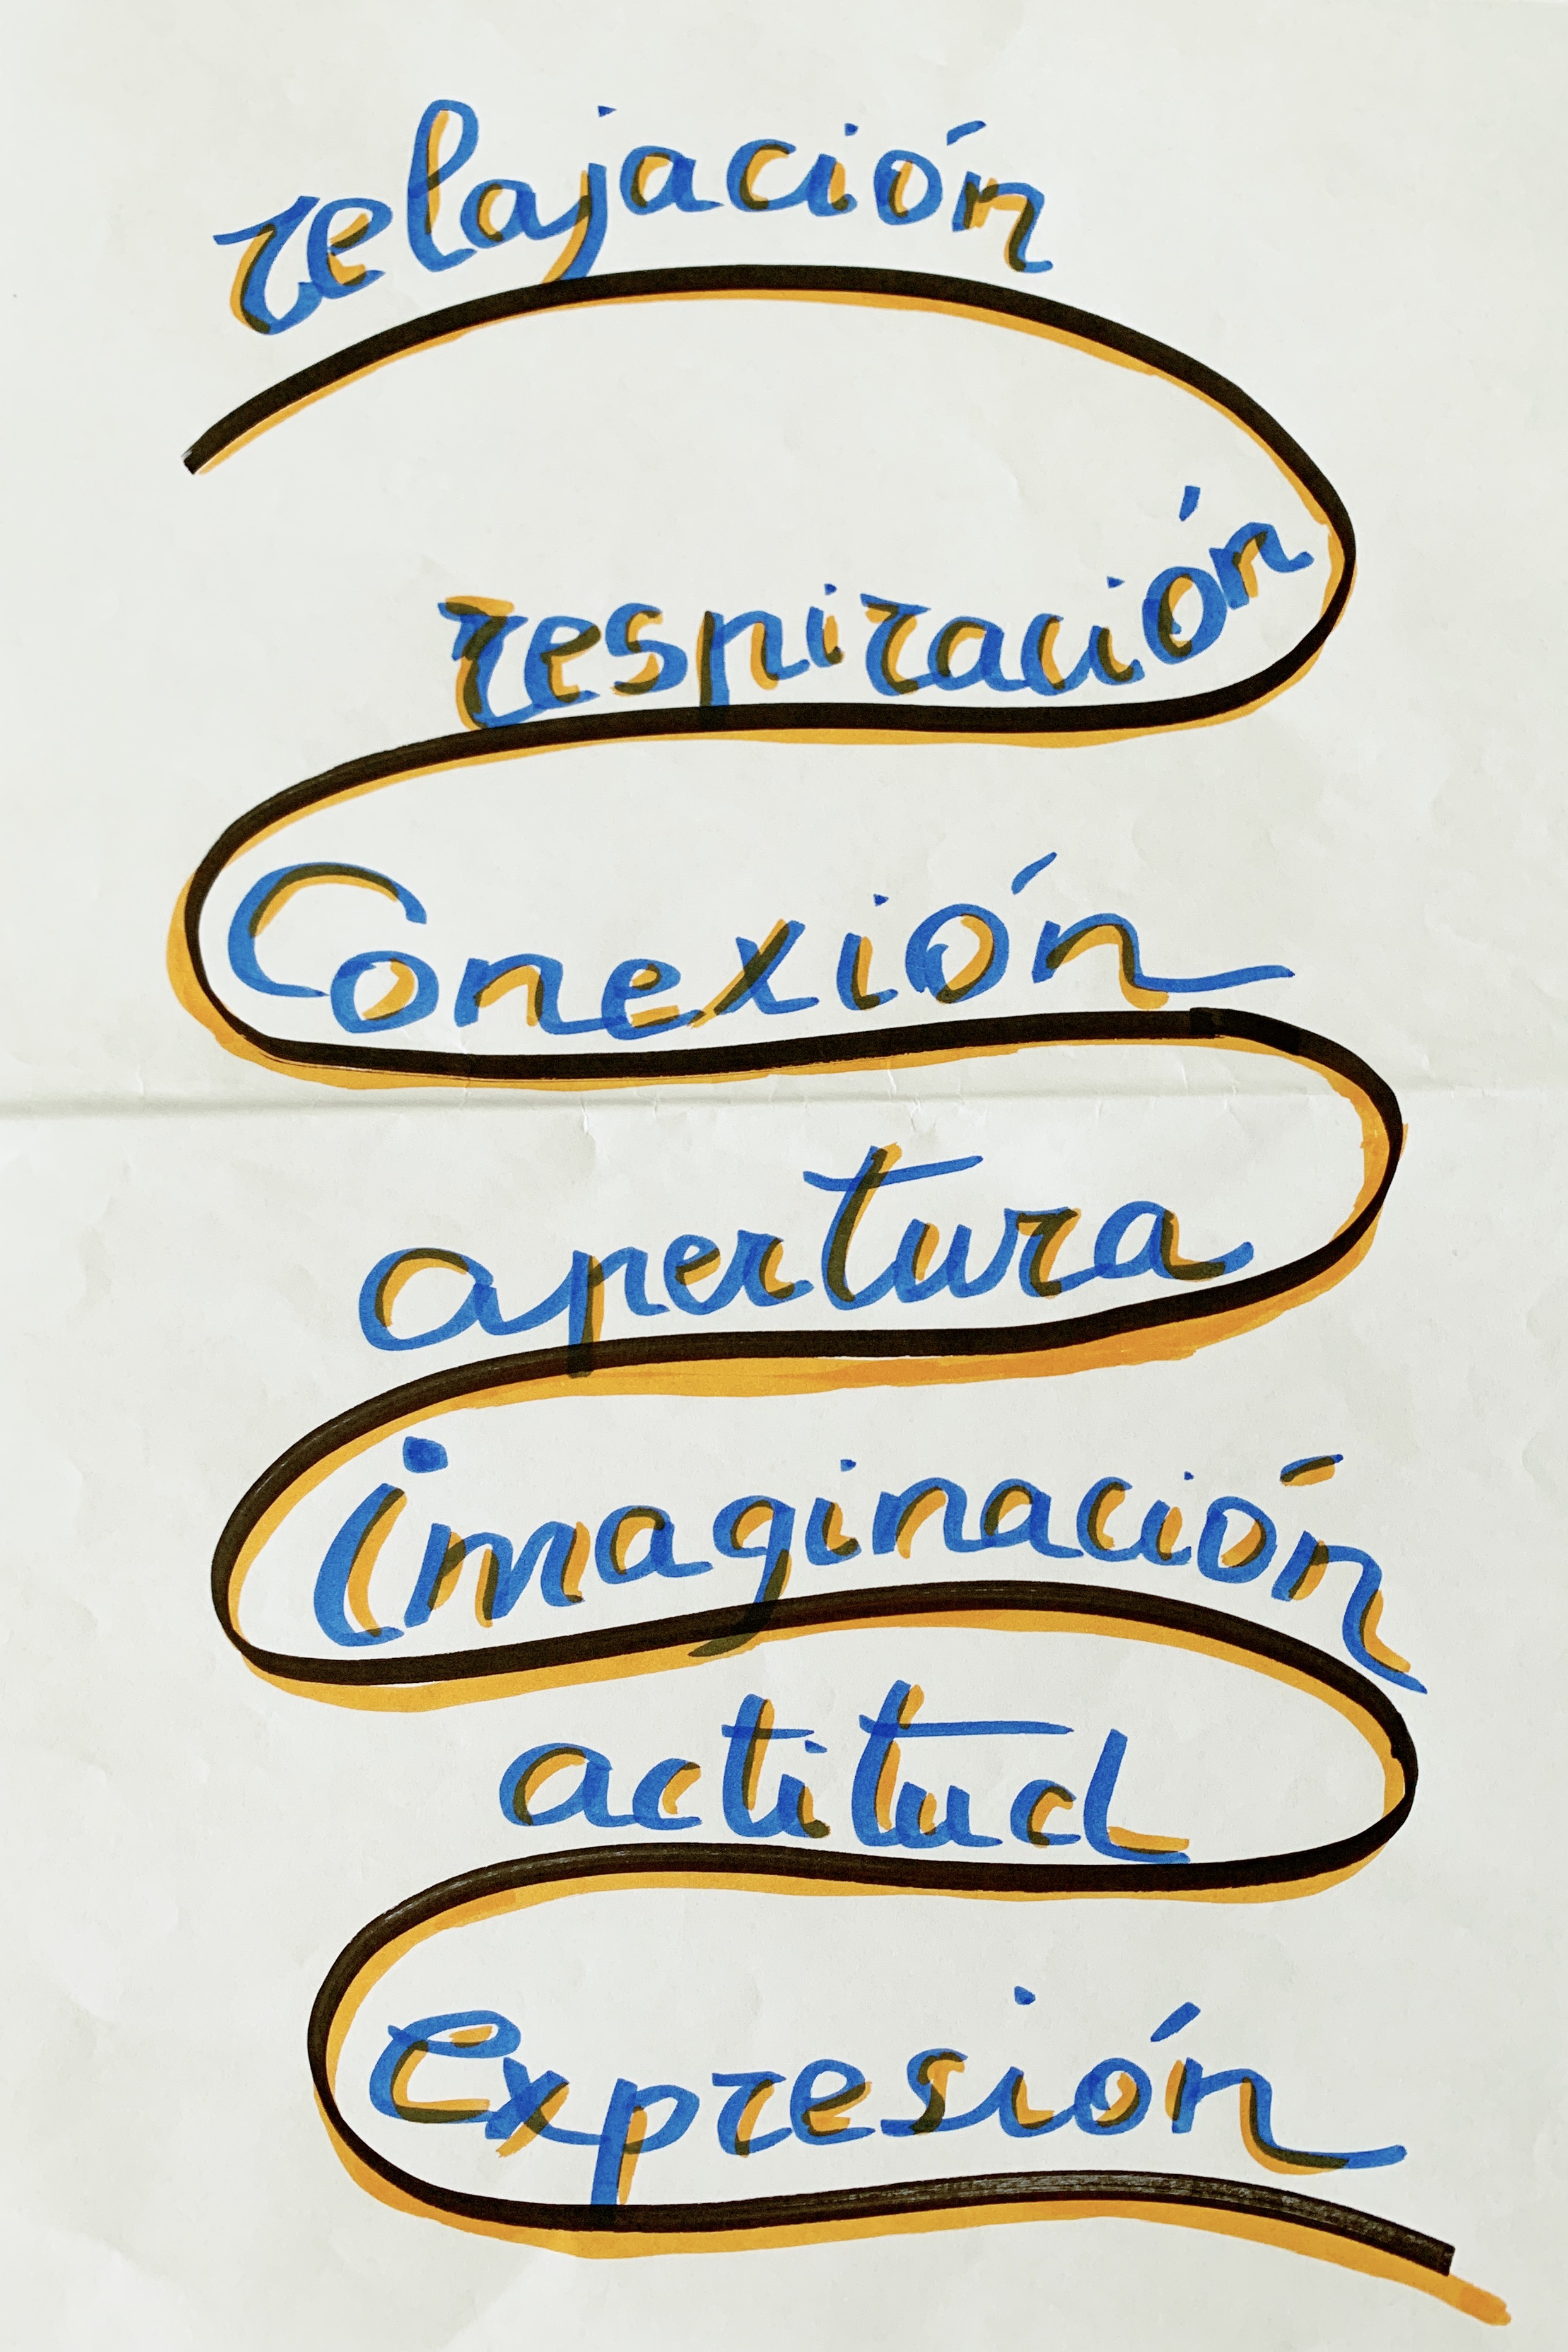 relajación
respiración
Conexión
apertura
imaginación
actitud
expresión